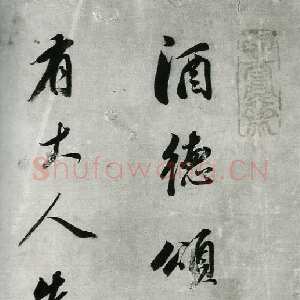 酒德頌
有大人先
Shufawang.CN